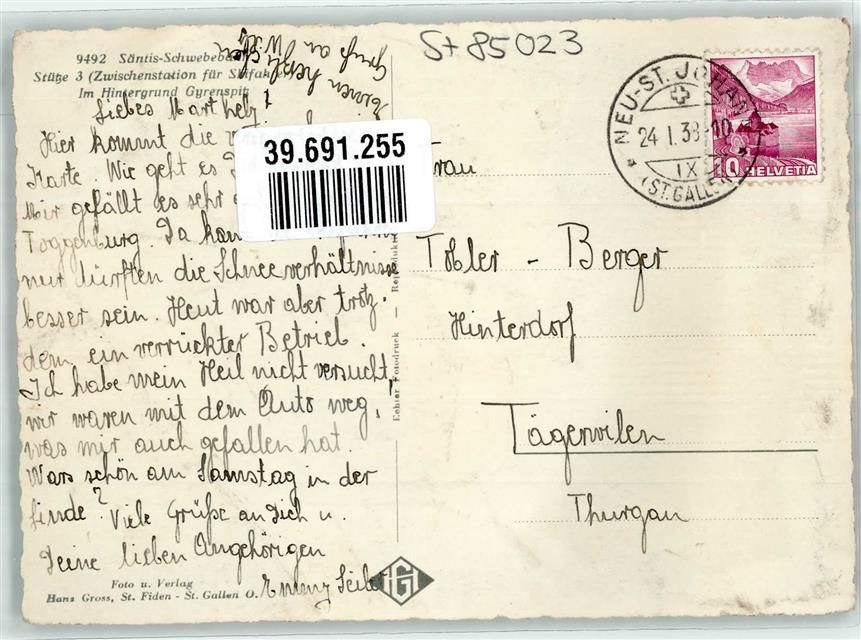 9492 Säntis-Schwebebahn
Stütze 3 (Zwischenstation für Skifahrer)
Im Hintergrund Gyrenspitz
St 85023
Liebes Marthely!
Hier kommt die
Karte. Wie geht es
Mir gefällt es sehr
Toggenburg. Da kann
nur dürften die Schneeverhältnisse
besser sein. Heut war aber trotz-
dem ein verrückter Betrieb.
Ich habe mein Heil nicht versucht,
wir waren mit dem Auto weg,
was mir auch gefallen hat.
Wars schön am Samstag in der
Linde? Viele Grüße an Dich u.
Deine lieben Angehörigen
Gruß an Willy
39.691.255
NEU-ST. JOHANN
24.I.38-10
IX
(ST. GALLEN)
10 HELVETIA
Frau
Tobler - Berger
Hinterdorf
Tägerwilen
Thurgau
Echter Fotodruck — Reproduktion
Foto u. Verlag
Hans Gross, St. Fiden - St. Gallen O.
HGF